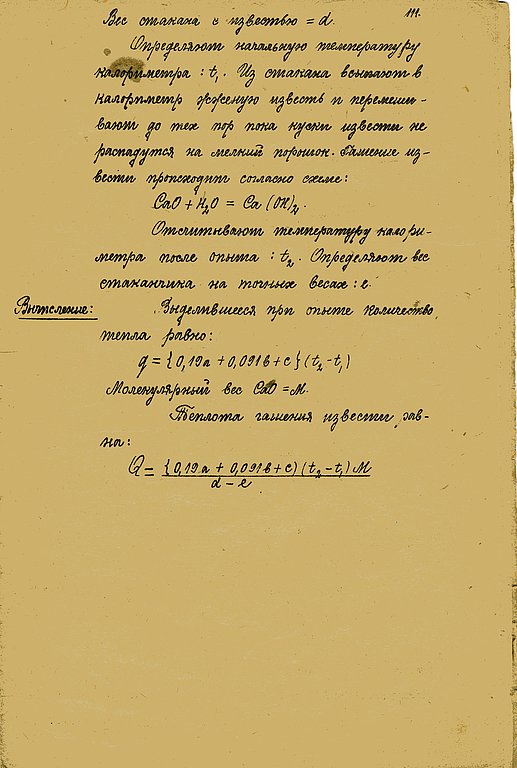 111.
Вес стакана с известью = d.
Определяют начальную температуру
калориметра : t₁. Из стакана всыпают в
калориметр жженую известь и перемеши-
вают до тех пор пока куски извести не
распадутся на мелкий порошок. Гашение из-
вести происходит согласно схеме:
CaO + H₂O = Ca (OH)₂.
Отсчитывают температуру калори-
метра после опыта : t₂. Определяют вес
стаканчика на точных весах : e
Вычисление: Выделившееся при опыте количество
тепла равно:
q = {0,19a + 0,091b + c} (t₂ - t₁)
Молекулярный вес CaO = M.
Теплота гашения извести рав-
на:
Q = {0,19a + 0,091b + c) (t₂ - t₁) M
d - e